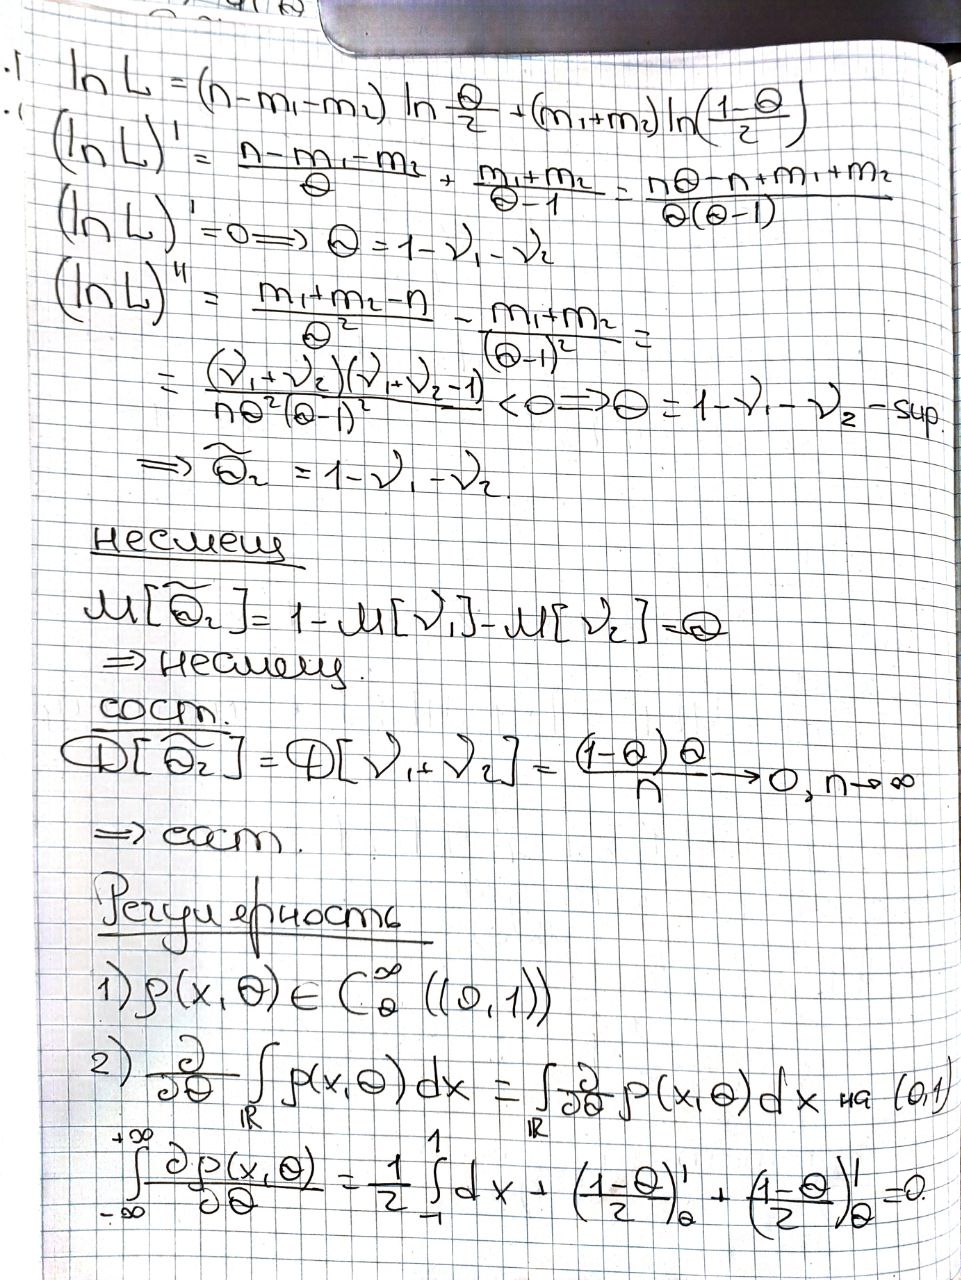 ln L = (n-m₁-m₂) ln Θ/2 + (m₁+m₂) ln((1-Θ)/2)
(ln L)' = (n-m₁-m₂)/Θ + (m₁+m₂)/(Θ-1) = (nΘ-n+m₁+m₂)/(Θ(Θ-1))
(ln L)' = 0 => Θ = 1-ν₁-ν₂
(ln L)'' = (m₁+m₂-n)/Θ² - (m₁+m₂)/(Θ-1)² =
= (ν₁+ν₂)(ν₁+ν₂-1)/(nΘ²(Θ-1)²) < 0 => Θ = 1-ν₁-ν₂ - sup.
=> Θ̃₂ = 1-ν₁-ν₂.
несмещ
M[Θ̃₂] = 1-M[ν₁]-M[ν₂] = Θ
=> несмещ.
сост.
D[Θ̃₂] = D[ν₁+ν₂] = (1-Θ)Θ/n → 0, n→∞
=> сост.
Регулярность
1) ρ(x,Θ) ∈ C^∞_Θ ((0,1))
2) ∂/∂Θ ∫_ℝ ρ(x,Θ) dx = ∫_ℝ ∂/∂Θ ρ(x,Θ) dx на (0,1)
∫_{-∞}^{+∞} ∂ρ(x,Θ)/∂Θ = 1/2 ∫_{-1}^{1} dx + ((1-Θ)/2)'_Θ + ((1-Θ)/2)'_Θ = 0.